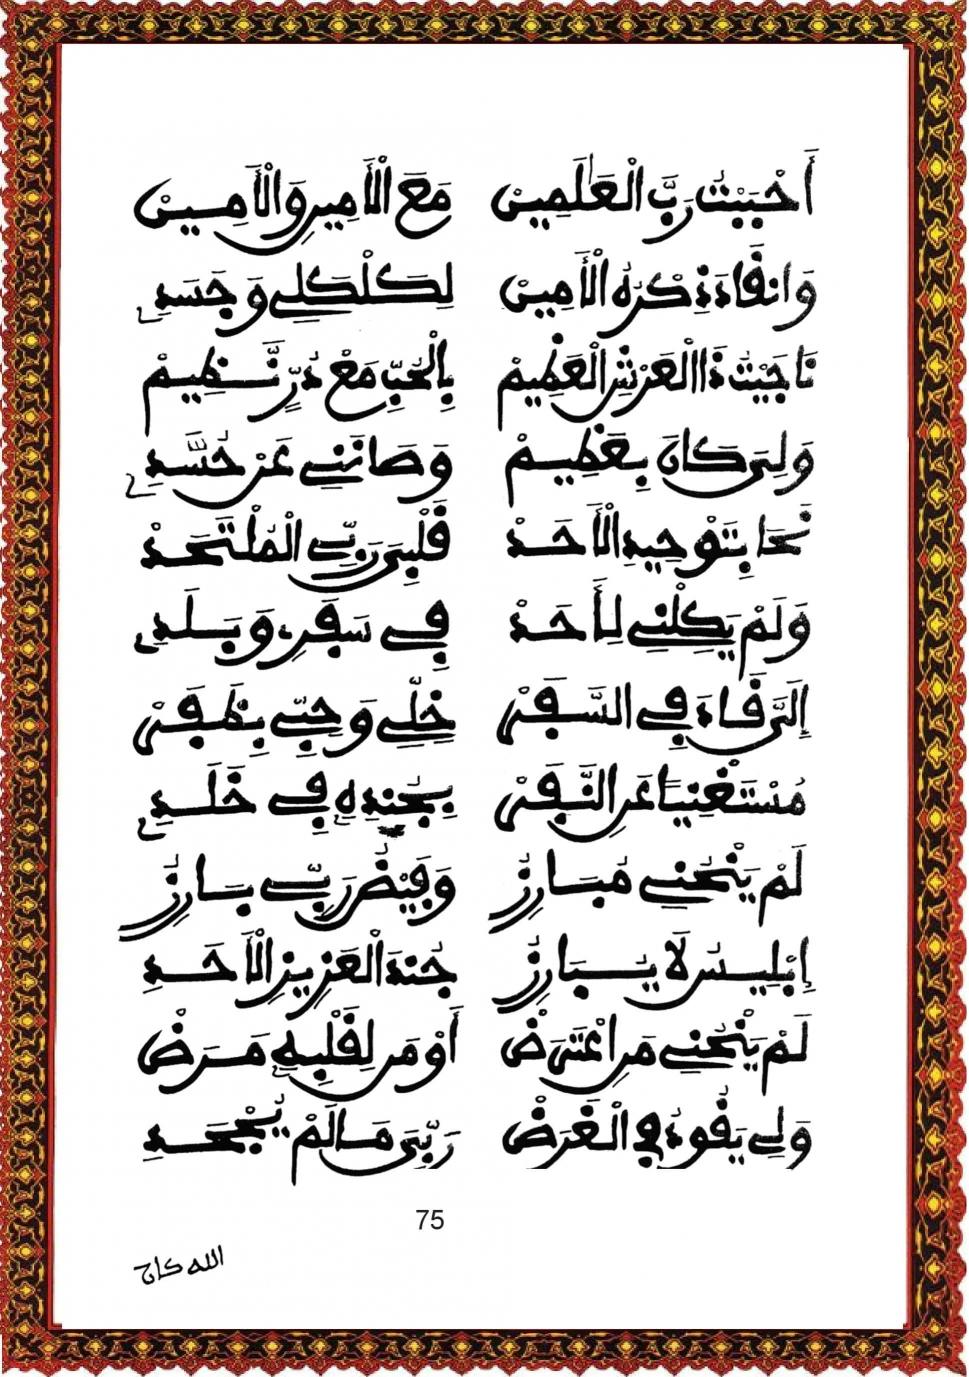 أَحْبَبْتُ رَبَّ الْعَٰلَمِينْ مَعَ الْأَمِيرِ وَالْأَمِينْ
وَانْقَادَ ذِكْرُهُ الْأَمِينْ لِكَلْكَلِي وَجَسَدِ
نَاجَيْتُ ذَا الْعَرْشِ الْعَظِيمْ بِالْحُبِّ مَعْ دُرٍّ نَّظِيمْ
وَلِيَ كَانَ بِعَظِيمْ وَصَانَنِي عَنْ حُسَّدِ
نَحَا بِتَوْحِيدِ الْأَحَدْ قَلْبِيَ رَبِّي الْمُلْتَحَدْ
وَلَمْ يَكِلْنِي لِأَحَدْ فِي سَفَرٍ وَبَلَدِ
إِلَيَّ قَادَ فِي السَّفَرْ خِلِّي وَحِبِّي بِظَفَرْ
مُسْتَغْنِيًا عَنِ النَّفَرْ بِجُندِهِ فِي خَلَدِ
لَمْ يَنْحُنِي مُبَارِزُ وَفَيْضُ رَبِّي بَارِزُ
إِبْلِيسُ لَا يُبَارِزُ جُندَ الْعَزِيزِ الْأَحَدِ
لَمْ يَنْحُنِي مَنِ اعْتَرَضْ أَوْ مَن لِقَلْبِهِ مَرَضْ
وَلِي يَقُودُ فِي الْغَرَضْ رَبِّيَ مَا لَمْ يُجْحَدِ
75
الله كاج